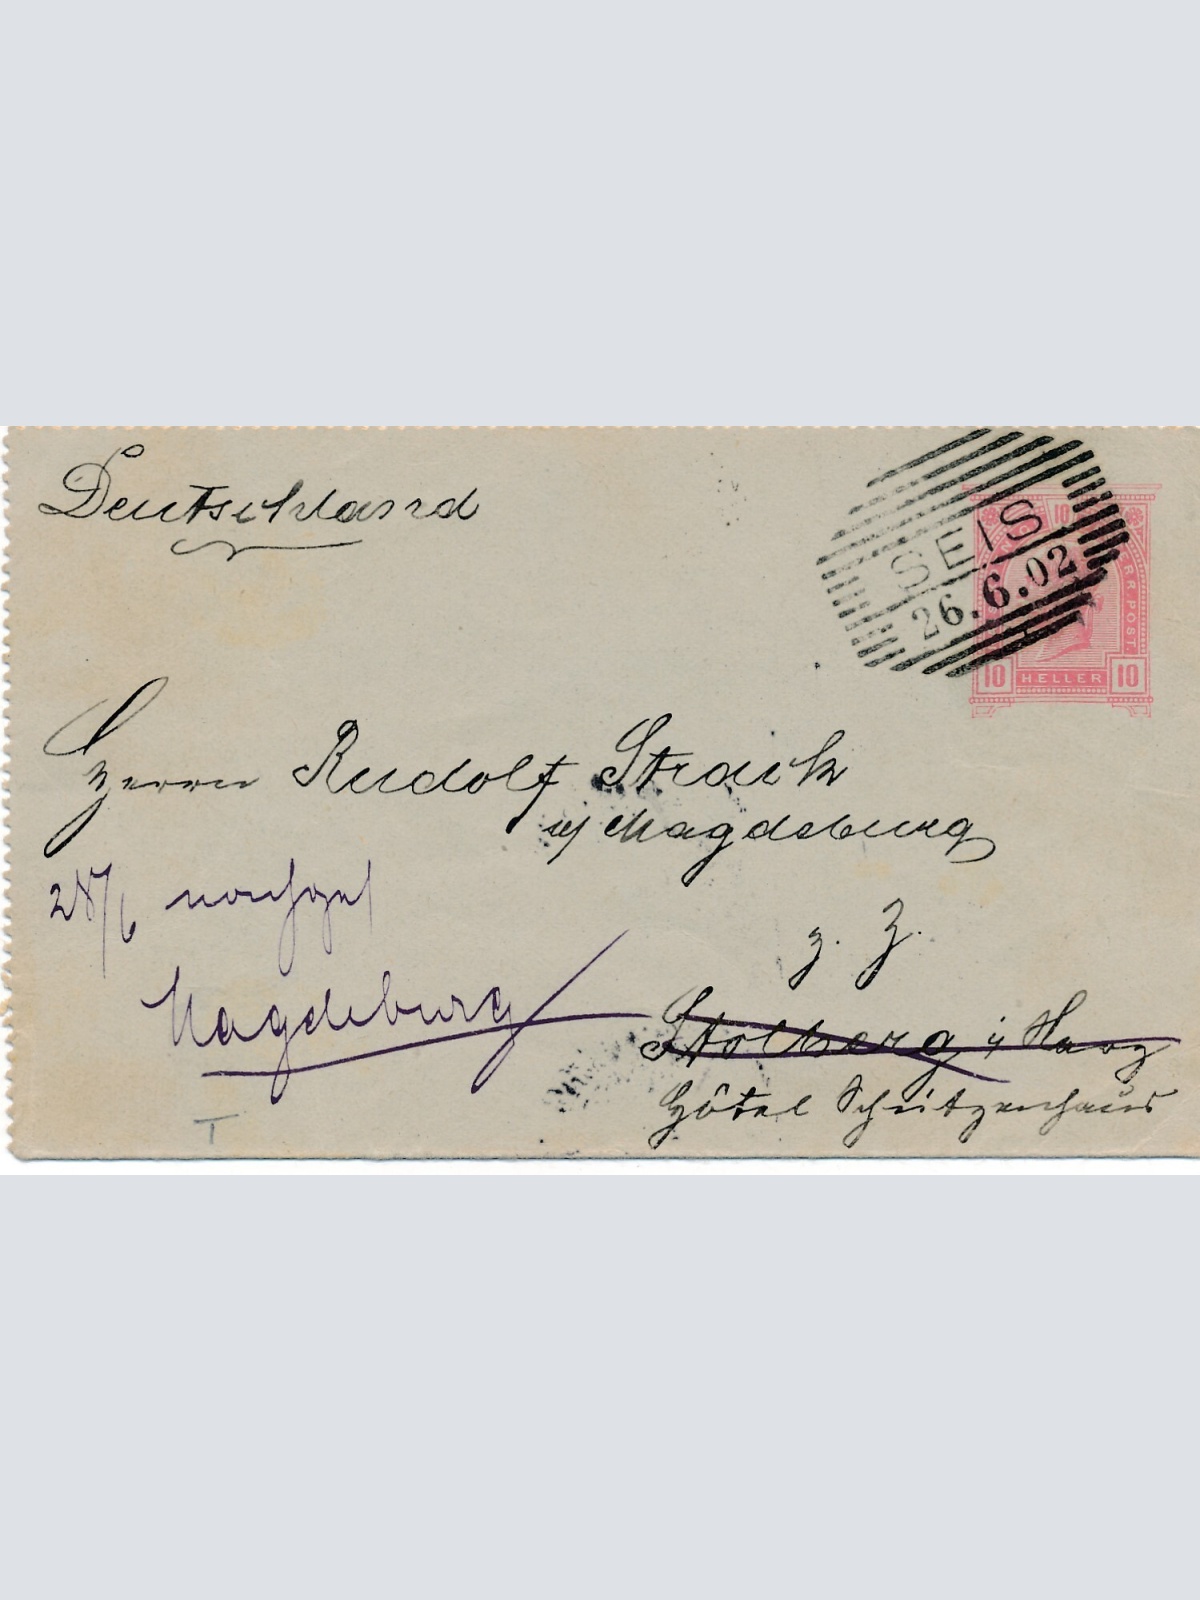 Deutschland
SEIS
26.6.02
10
ERR. POST
10 HELLER 10
Herrn Rudolf Strack
a/ Magdeburg
28/6
z. Z.
Magdeburg
Stolberg i/ Harz
Hôtel Schützenhaus
T